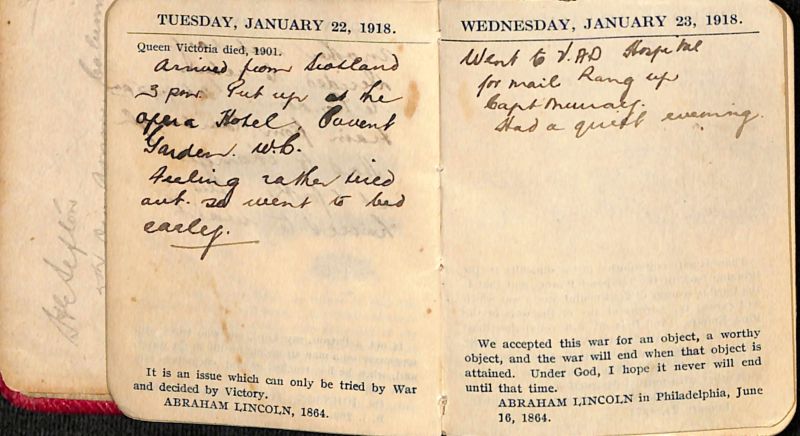 TUESDAY, JANUARY 22, 1918.
Queen Victoria died, 1901.
Arrived from Scotland
3 pm. Put up at the
Opera Hotel, Covent
Garden. W.C.
Feeling rather tired
out. so went to bed
early.
It is an issue which can only be tried by War
and decided by Victory.
ABRAHAM LINCOLN, 1864.
WEDNESDAY, JANUARY 23, 1918.
Went to V.A.D Hospital
for mail Rang up
Capt Murray.
Had a quiet evening.
We accepted this war for an object, a worthy
object, and the war will end when that object is
attained. Under God, I hope it never will end
until that time.
ABRAHAM LINCOLN in Philadelphia, June
16, 1864.